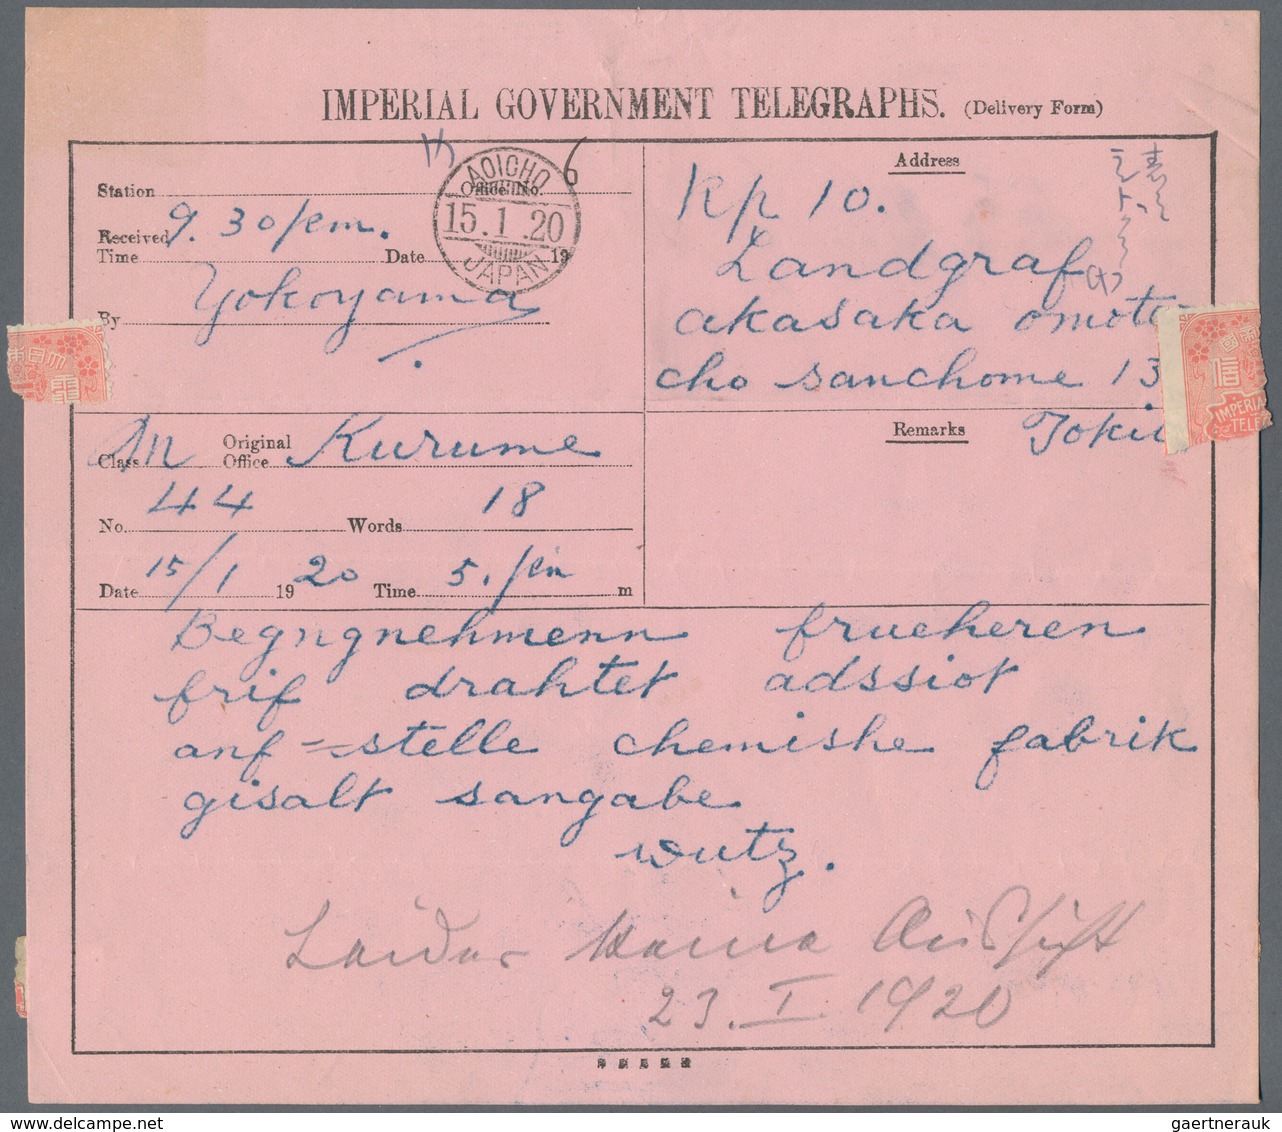 IMPERIAL GOVERNMENT TELEGRAPHS. (Delivery Form)
Station Office No. 6
AOICHO
15.1.20
JAPAN
Received Time 9.30 pm. Date 19
By Yokoyama
Address
Rp 10.
Landgraf
akasaka omote
cho sanchome 13
Tokio
Remarks
Class m Original Office Kurume
No. 44 Words 18
Date 15/1 1920 Time 5. pm m
Begngnehmenn frueheren
frif drahtet adssiot
anf = stelle chemishe fabrik
gisalt sangabe
wutz.
Leider keine Aussicht
23. I. 1920
IMPERIA
TELEG
信
gaertnerauk